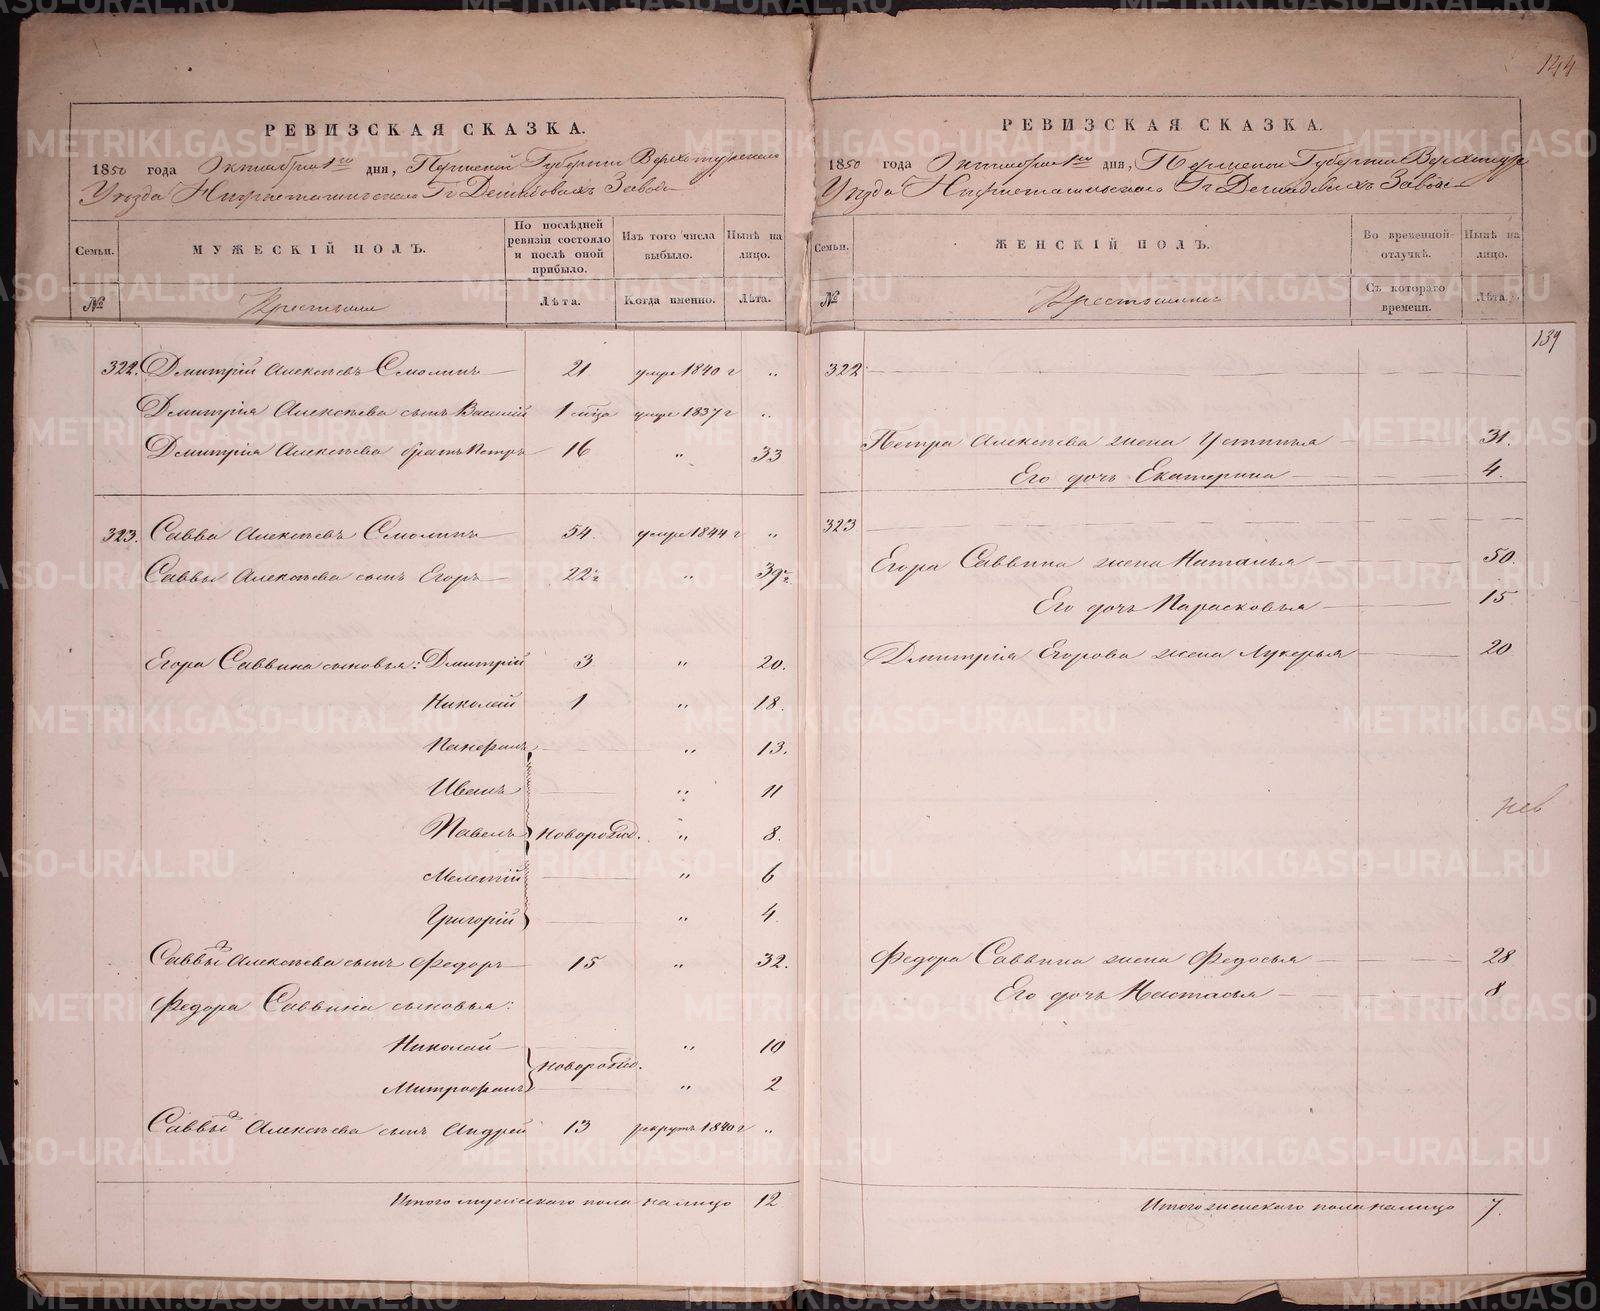 144
РЕВИЗСКАЯ СКАЗКА.
1850 года Октября 1го дня, Пермской Губернии Верхотурскаго
Уезда Нижнетагильскаго Гг Демидовыхъ Завода
Семьи.
МУЖЕСКІЙ ПОЛЪ.
По послѣдней ревизіи состояло и послѣ оной прибыло.
Изъ того числа выбыло.
Нынѣ на лицо.
№
Крестьяне
Лѣта.
Когда именно.
Лѣта.
322. Дмитрій Алексѣевъ Смолинъ 21 умре 1840 г "
Дмитрія Алексѣева сынъ Василій 1 мца умре 1837 г "
Дмитрія Алексѣева братъ Петръ 16 " 33
323. Савва Алексѣевъ Смолинъ 54. умре 1844 г "
Саввы Алексѣева сынъ Егоръ 22½ " 39½
Егора Саввина сыновья: Дмитрій 3 " 20.
Николай 1 " 18.
Панкратъ " 13.
Иванъ " 11
Павелъ новорожд. " 8.
Мелетій " 6
Григорій " 4.
Саввы 2 Алексѣева сынъ Федоръ 15 " 32.
Федора Саввина сыновья:
Николай " 10
новорожд.
Митрофанъ " 2
Саввы 3 Алексѣева сынъ Андрей 13 рекрутъ 1840 г "
Итого мужескаго пола на лицо 12
РЕВИЗСКАЯ СКАЗКА.
1850 года Октября 1го дня, Пермской Губерніи Верхотурс
Уезда Нижнетагильскаго Гг Демидовыхъ Завода
Семьи.
ЖЕНСКІЙ ПОЛЪ.
Во временной отлучкѣ.
Нынѣ на лицо.
№
Крестьянки
Съ котораго времени.
Лѣта.
139
322
Петра Алексѣева жена Устинья 31.
Его дочь Екатерина 4.
323
Егора Саввина жена Наталья 50.
Его дочь Парасковья 15
Дмитрія Егорова жена Лукерья 20
Федора Саввина жена Федосья 28
Его дочь Настасья 8
Итого женскаго пола на лицо 7.
METRIKI.GASO-URAL.RU